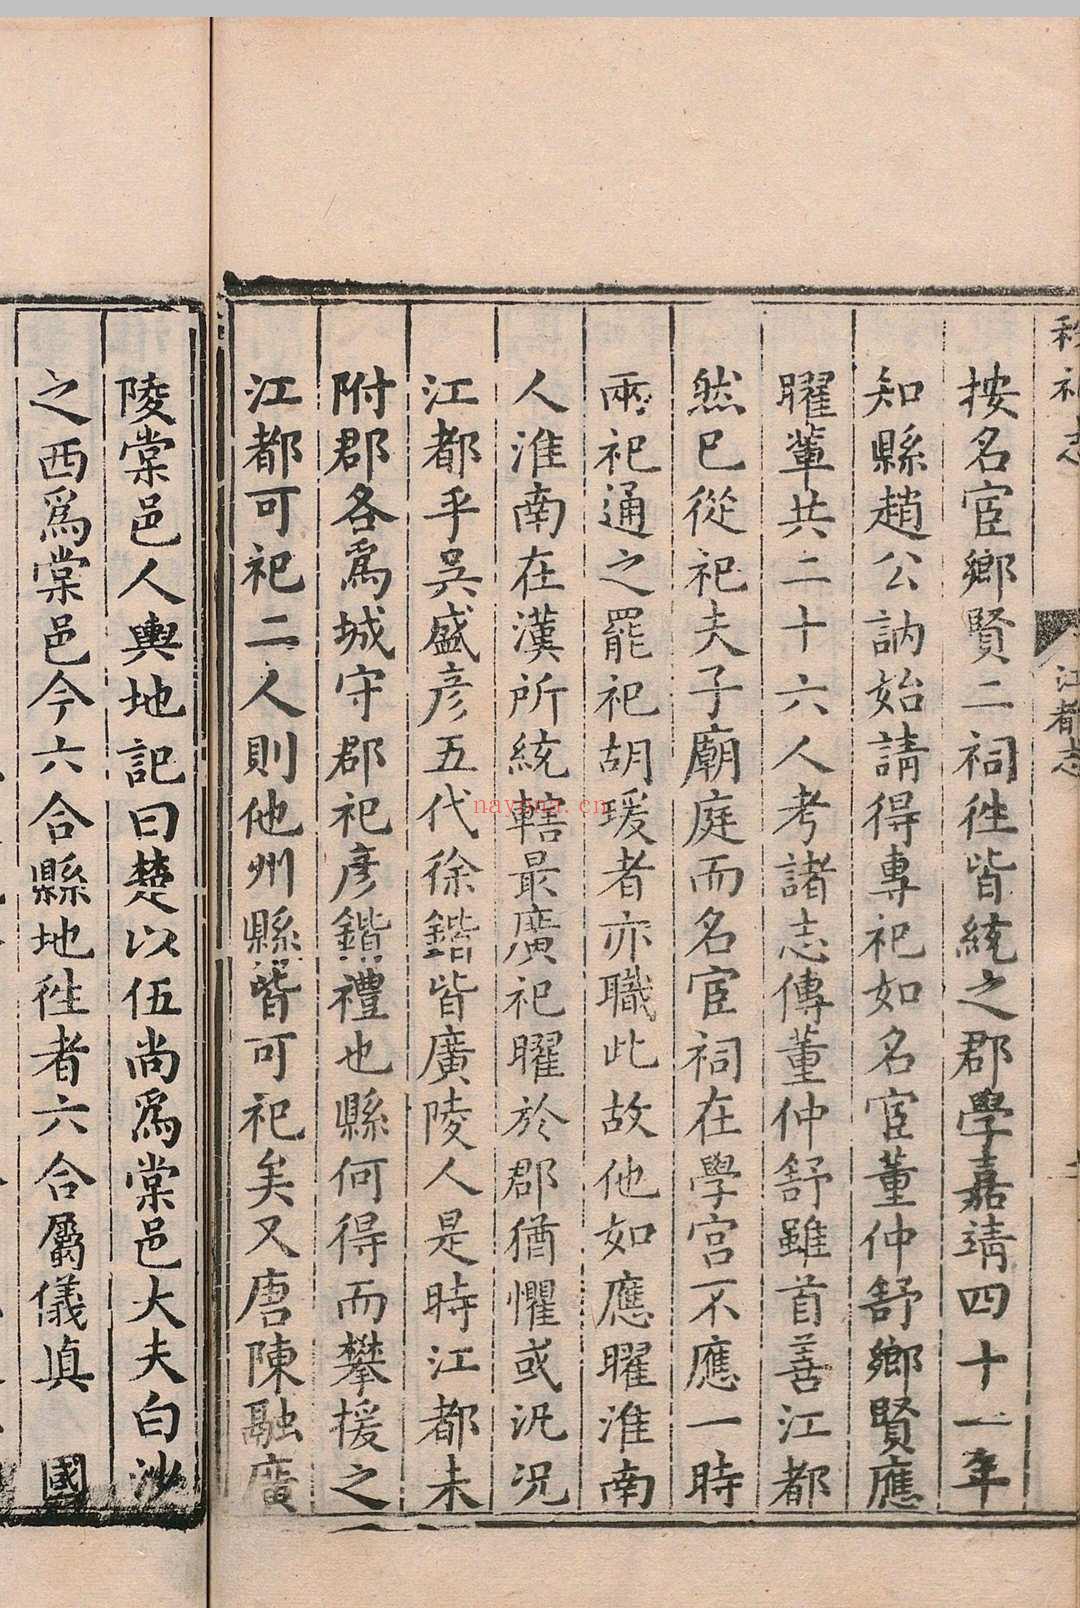 秩祀志 江都志
按名宦鄉賢二祠徃皆統之郡學嘉靖四十一年
知縣趙公訥始請得專祀如名宦董仲舒鄉賢應
曜軰共二十六人考諸志傳董仲舒雖首善江都
然已從祀夫子廟庭而名宦祠在學宮不應一時
兩祀通之罷祀胡瑗者亦職此故他如應曜淮南
人淮南在漢所統轄最廣祀曜於郡猶懼或汎況
江都乎吳盛彥五代徐鍇皆廣陵人是時江都未
附郡各爲城守郡祀彥鍇禮也縣何得而攀援之
江都可祀二人則他州縣皆可祀矣又唐陳融廣
陵棠邑人輿地記曰楚以伍尚爲棠邑大夫白沙
之西爲棠邑今六合縣地徃者六合屬儀真 國
navona.cn